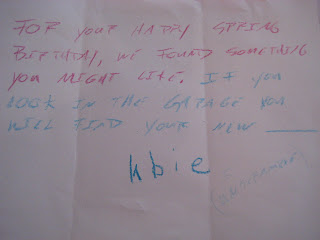 FOR YOUR HAPPY SPRING
BIRTHDAY, WE FOUND SOMETHING
YOU MIGHT LIKE. IF YOU
LOOK IN THE GARAGE YOU
WILL FIND YOUR NEW ______
hbie